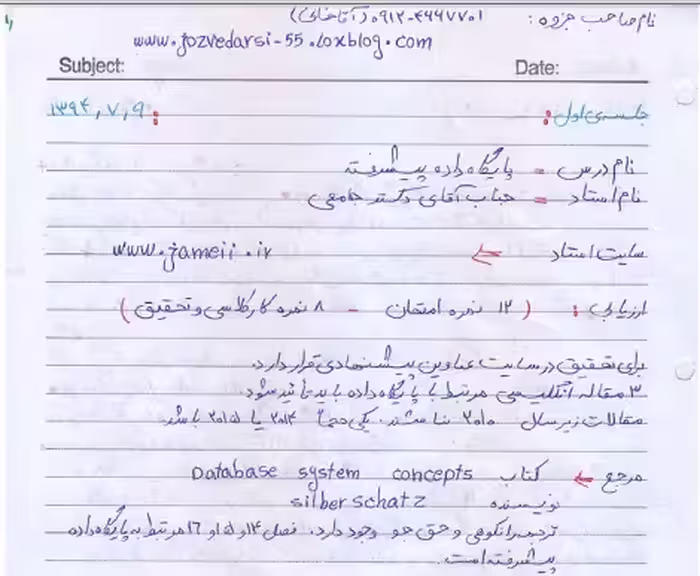 نام صاحب جزوه: ۰۹۱۲-۴۶۶۷۷۰۱ (آقاخانی)
www.jozvedarsi-55.loxblog.com
Subject: Date:
جلسه‌ی اول: ۱۳۹۴,۷,۹:
نام درس = پایگاه داده پیشرفته
نام استاد = جناب آقای دکتر جامعی
سایت استاد ← www.jameii.ir
ارزیابی: (۱۲ نمره امتحان - ۸ نمره کار کلاسی و تحقیق)
برای تحقیق در سایت عناوین پیشنهادی قرار دارد.
۳ مقاله انگلیسی مرتبط با پایگاه داده باید تائید شود.
مقالات زیر سال ۲۰۱۰ نباشند. یکی حتماً ۲۰۱۴ یا ۲۰۱۵ باشد.
مرجع ← کتاب Database system concepts
نویسنده silberschatz
ترجمه رانکوهی و حق جو وجود دارد. فصل ۱۴ و ۱۵ و ۱۶ مرتبط به پایگاه داده
پیشرفته است.